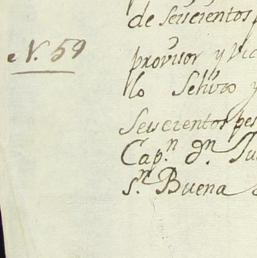 de Seiscientos p
N. 59
provisor y Vic
lo Sehizo y
Seiscientos pes
Cap.n dn. Ju
s.n Buena